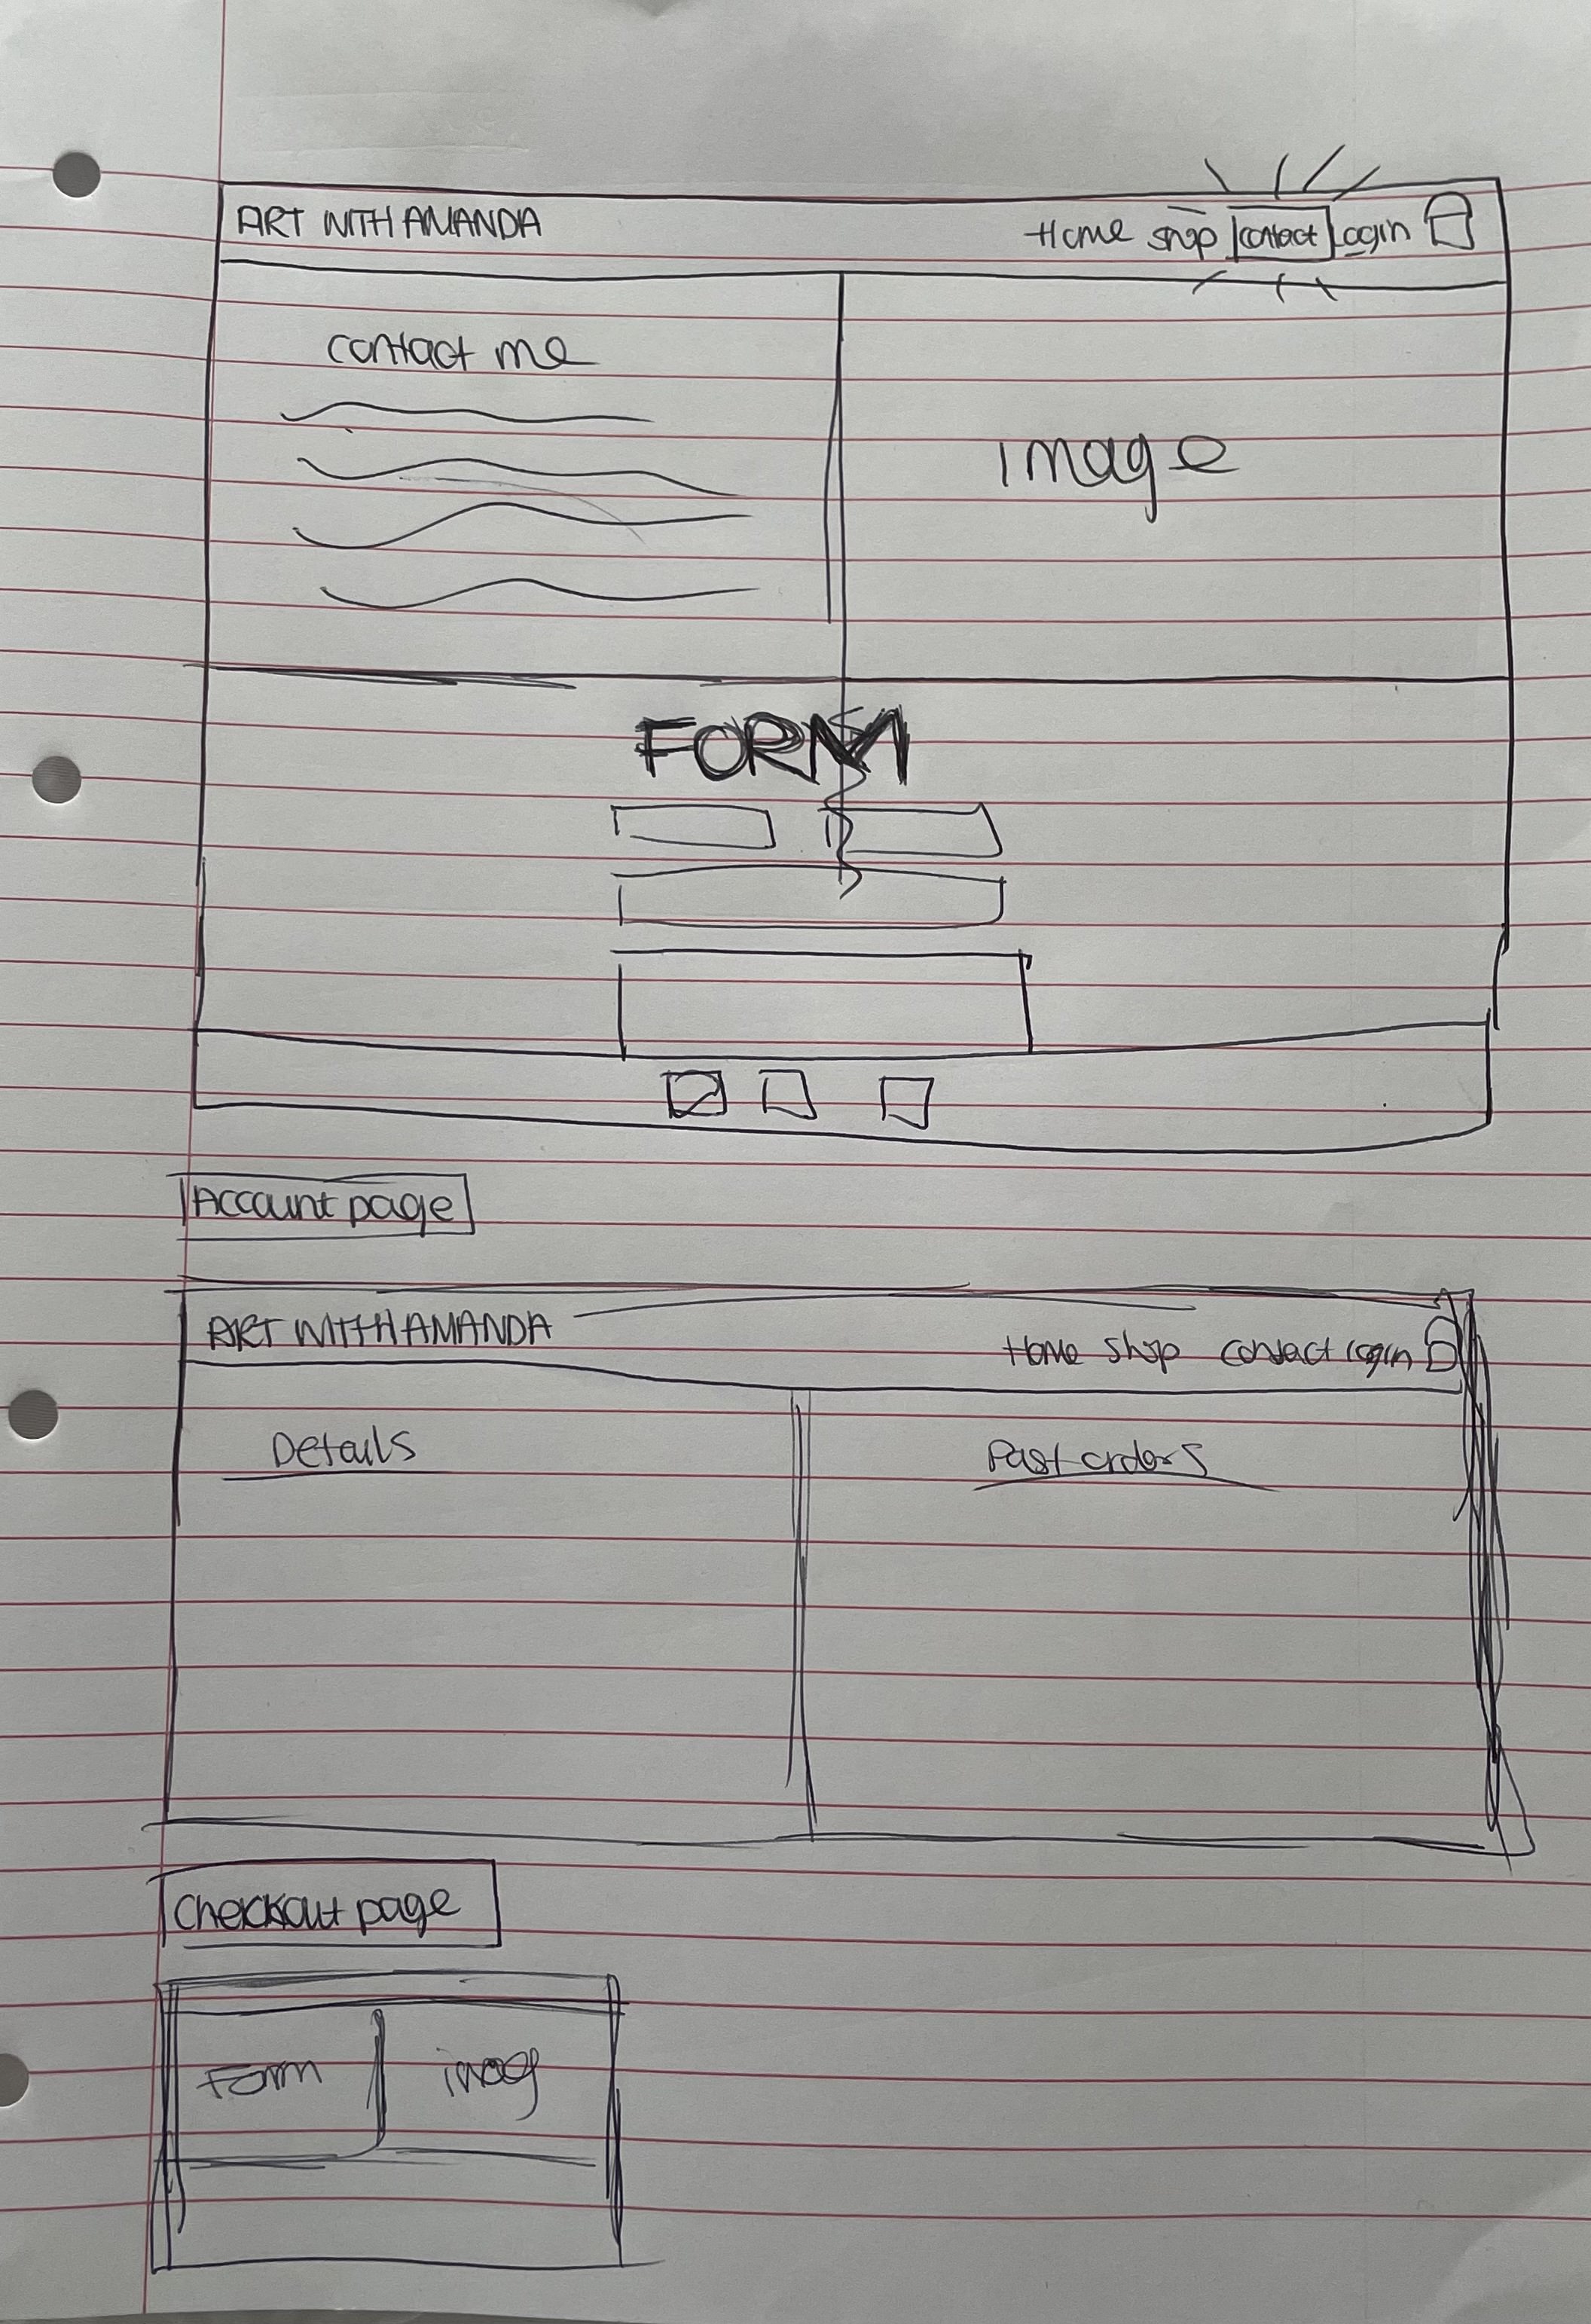 ART WITH AMANDA
Home shop contact Login
contact me
image
FORM
Account page
ART WITH AMANDA
Home shop contact login
Details
Past orders
checkout page
Form
imag